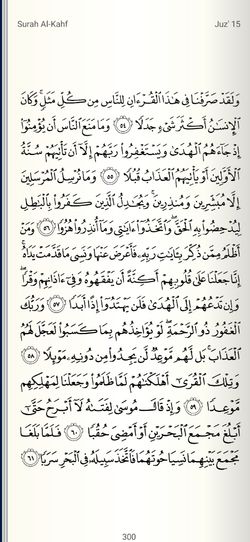 Surah Al-Kahf
Juz' 15
وَلَقَدْ صَرَّفْنَا فِي هَٰذَا ٱلْقُرْءَانِ لِلنَّاسِ مِن كُلِّ مَثَلٍ ۚ وَكَانَ
ٱلْإِنسَٰنُ أَكْثَرَ شَىْءٍ جَدَلًا ٥٤ وَمَا مَنَعَ ٱلنَّاسَ أَن يُؤْمِنُوٓا۟
إِذْ جَآءَهُمُ ٱلْهُدَىٰ وَيَسْتَغْفِرُوا۟ رَبَّهُمْ إِلَّآ أَن تَأْتِيَهُمْ سُنَّةُ
ٱلْأَوَّلِينَ أَوْ يَأْتِيَهُمُ ٱلْعَذَابُ قُبُلًا ٥٥ وَمَا نُرْسِلُ ٱلْمُرْسَلِينَ
إِلَّا مُبَشِّرِينَ وَمُنذِرِينَ ۚ وَيُجَٰدِلُ ٱلَّذِينَ كَفَرُوا۟ بِٱلْبَٰطِلِ
لِيُدْحِضُوا۟ بِهِ ٱلْحَقَّ ۖ وَٱتَّخَذُوٓا۟ ءَايَٰتِى وَمَآ أُنذِرُوا۟ هُزُوًا ٥٦ وَمَنْ
أَظْلَمُ مِمَّن ذُكِّرَ بِـَٔايَٰتِ رَبِّهِۦ فَأَعْرَضَ عَنْهَا وَنَسِىَ مَا قَدَّمَتْ يَدَاهُ ۚ
إِنَّا جَعَلْنَا عَلَىٰ قُلُوبِهِمْ أَكِنَّةً أَن يَفْقَهُوهُ وَفِىٓ ءَاذَانِهِمْ وَقْرًا ۖ
وَإِن تَدْعُهُمْ إِلَى ٱلْهُدَىٰ فَلَن يَهْتَدُوٓا۟ إِذًا أَبَدًا ٥٧ وَرَبُّكَ
ٱلْغَفُورُ ذُو ٱلرَّحْمَةِ ۖ لَوْ يُؤَاخِذُهُم بِمَا كَسَبُوا۟ لَعَجَّلَ لَهُمُ
ٱلْعَذَابَ ۚ بَل لَّهُم مَّوْعِدٌ لَّن يَجِدُوا۟ مِن دُونِهِۦ مَوْئِلًا
٥٨
وَتِلْكَ ٱلْقُرَىٰٓ أَهْلَكْنَٰهُمْ لَمَّا ظَلَمُوا۟ وَجَعَلْنَا لِمَهْلِكِهِم
مَّوْعِدًا ٥٩ وَإِذْ قَالَ مُوسَىٰ لِفَتَىٰهُ لَآ أَبْرَحُ حَتَّىٰٓ
أَبْلُغَ مَجْمَعَ ٱلْبَحْرَيْنِ أَوْ أَمْضِىَ حُقُبًا ٦٠ فَلَمَّا بَلَغَا
مَجْمَعَ بَيْنِهِمَا نَسِيَا حُوتَهُمَا فَٱتَّخَذَ سَبِيلَهُۥ فِى ٱلْبَحْرِ سَرَبًا ٦١
300